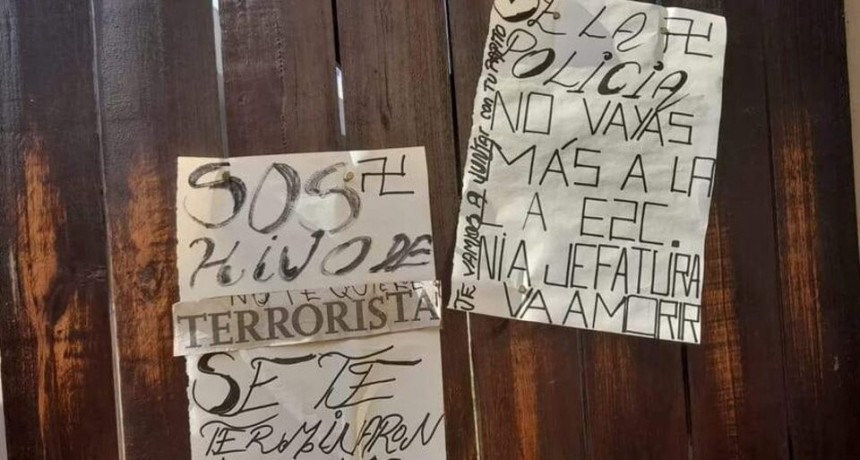 SOS 卍
HIJO DE
NO TE QUIERE
TERRORISTA
SE TE
TERMINARON
DE LA 卍
POLICIA
NO VAYAS
MÁS A LA
A EZC.
NI A JEFATURA
VA A MORIR
TE VAMOS A JUNTAR CON TU PAPITO